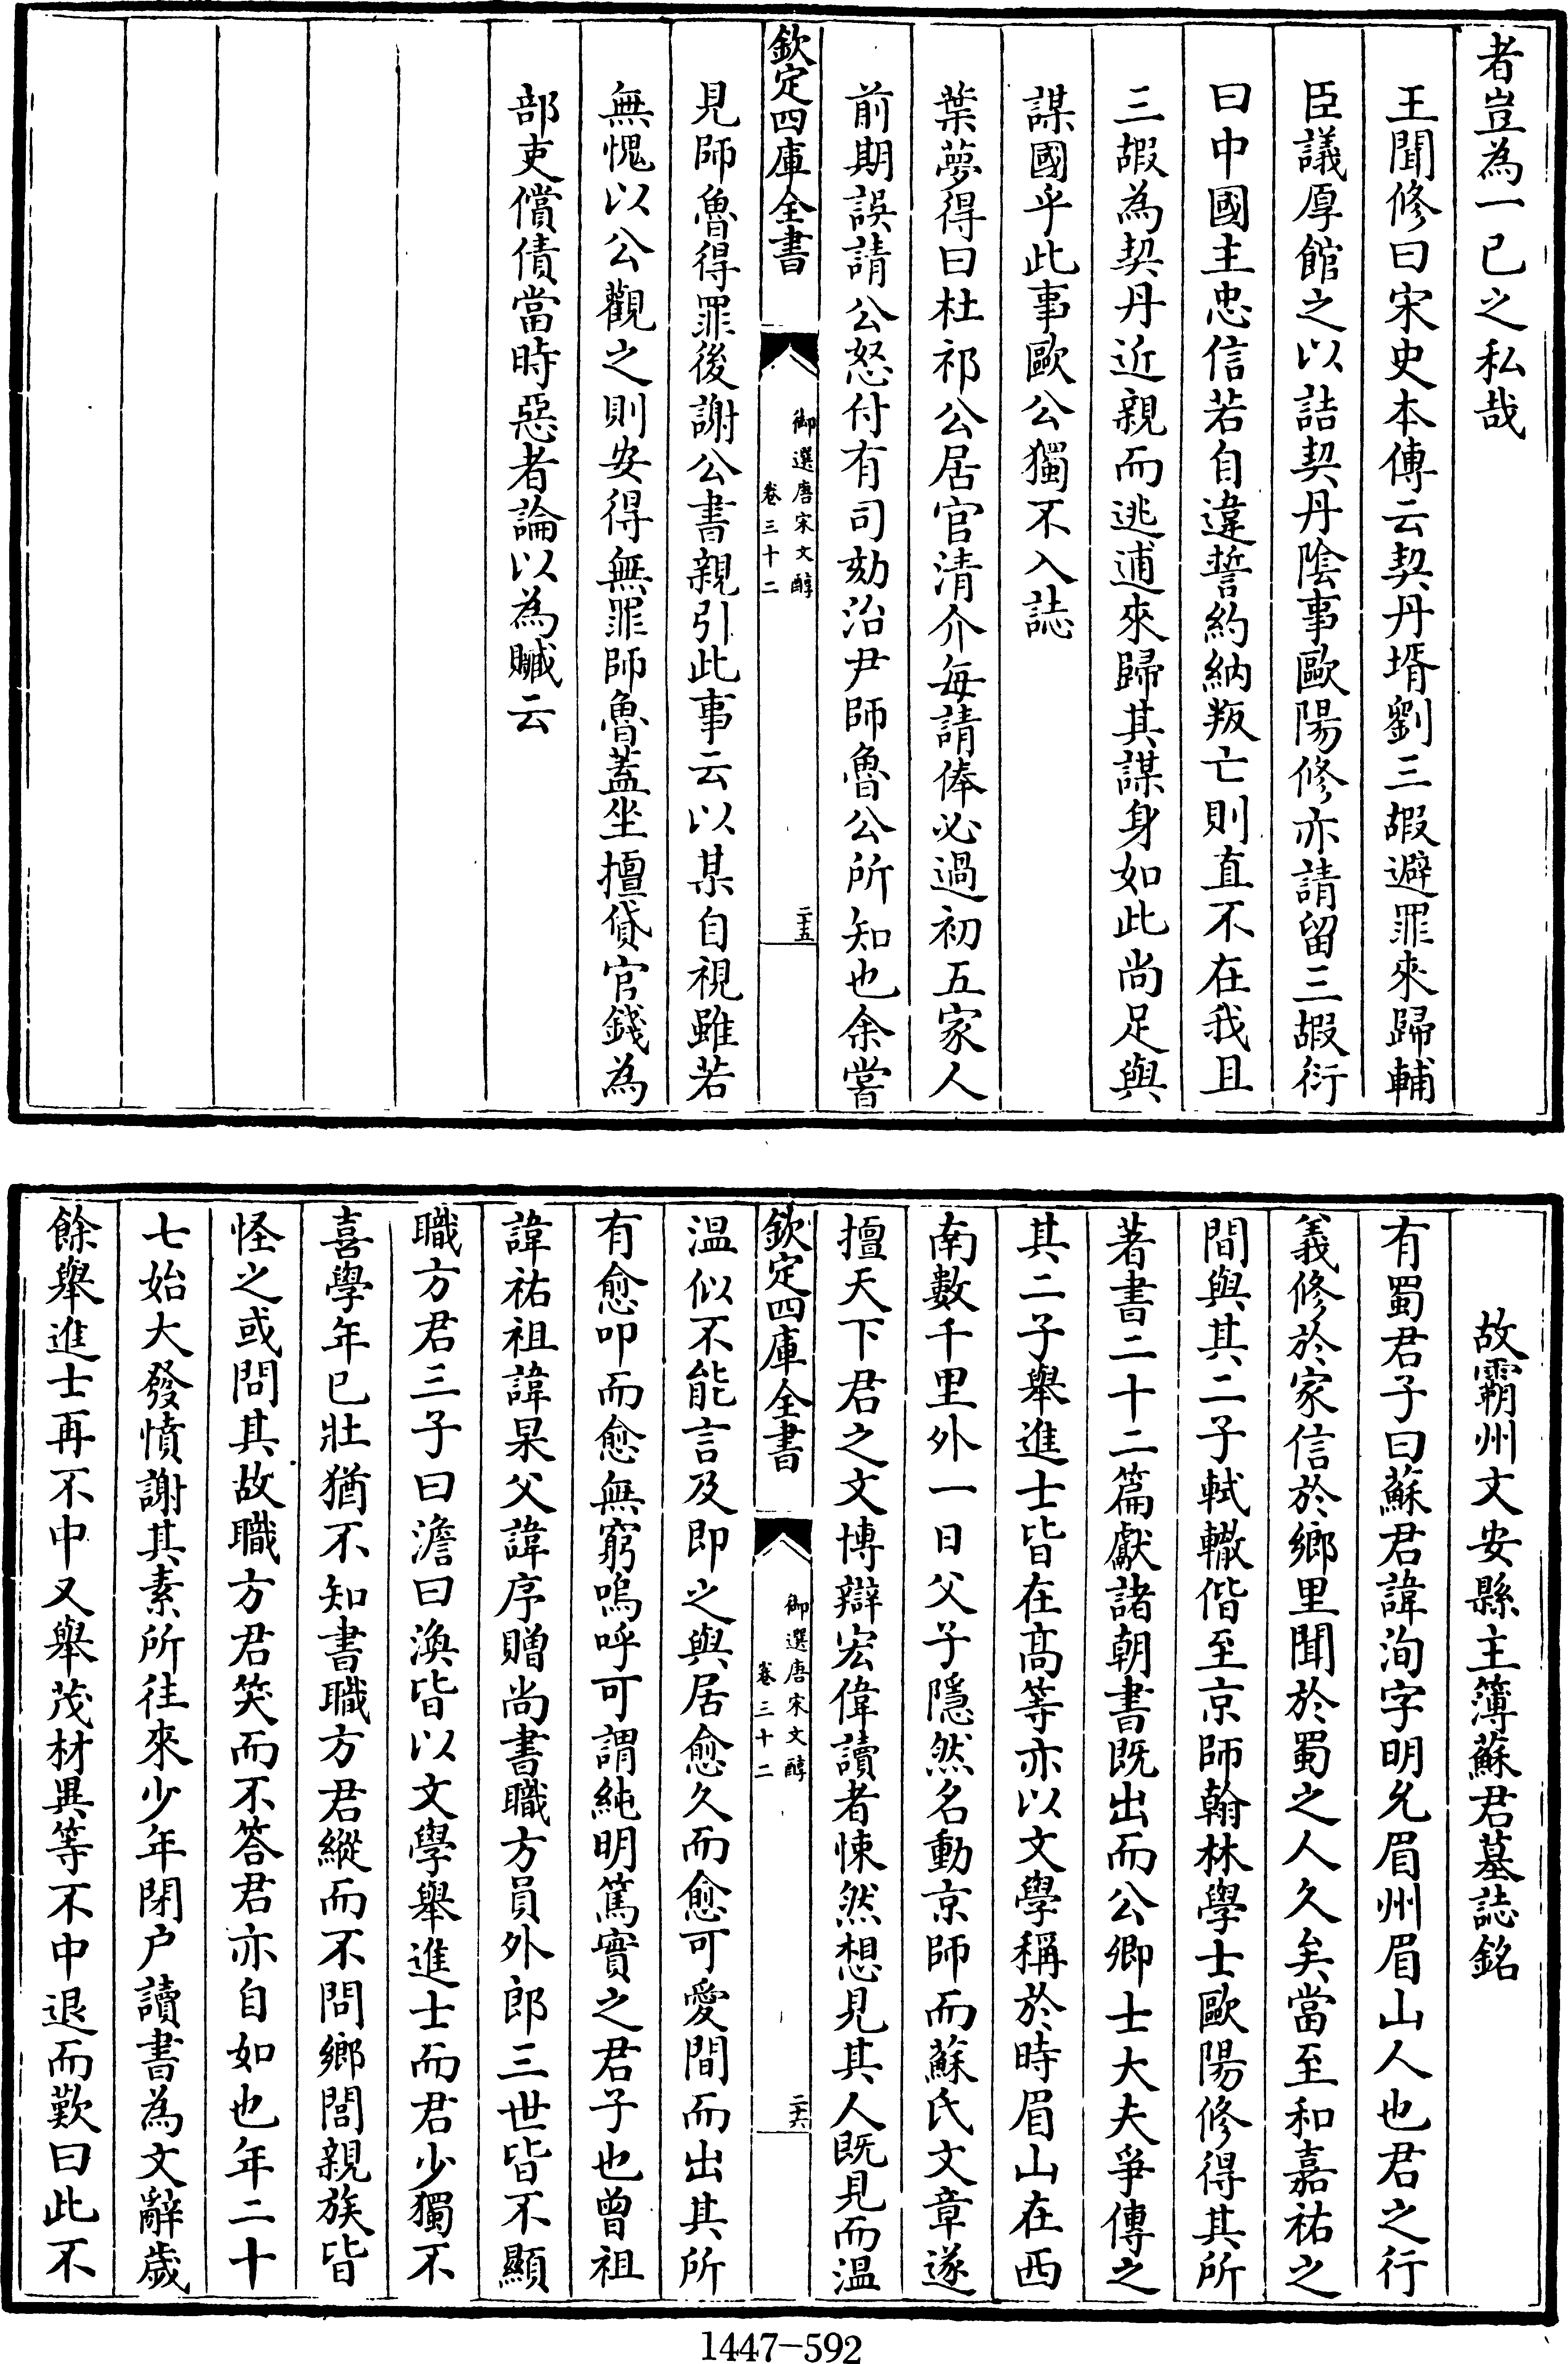 者豈為一已之私哉
王聞修曰宋史本傳云契丹壻劉三嘏避罪來歸輔
臣議厚館之以詰契丹陰事歐陽修亦請留三嘏衍
曰中國主忠信若自違誓約納叛亡則直不在我且
三嘏為契丹近親而逃逋來歸其謀身如此尚足與
謀國乎此事歐公獨不入誌
葉夢得曰杜祁公居官清介每請俸必過初五家人
前期誤請公怒付有司劾治尹師魯公所知也余嘗
欽定四庫全書
御選唐宋文醇
卷三十二
二十五
見師魯得罪後謝公書親引此事云以某自視雖若
無愧以公觀之則安得無罪師魯蓋坐擅貸官錢為
部吏償債當時惡者論以為贓云
故霸州文安縣主簿蘇君墓誌銘
有蜀君子曰蘇君諱洵字明允眉州眉山人也君之行
義修於家信於鄉里聞於蜀之人久矣當至和嘉祐之
間與其二子軾轍偕至京師翰林學士歐陽修得其所
著書二十二篇獻諸朝書既出而公卿士大夫爭傳之
其二子舉進士皆在高等亦以文學稱於時眉山在西
南數千里外一日父子隱然名動京師而蘇氏文章遂
擅天下君之文博辯宏偉讀者悚然想見其人既見而溫
欽定四庫全書
御選唐宋文醇
卷三十二
二十六
溫似不能言及即之與居愈久而愈可愛間而出其所
有愈叩而愈無窮嗚呼可謂純明篤實之君子也曾祖
諱祐祖諱杲父諱序贈尚書職方員外郎三世皆不顯
職方君三子曰澹曰渙皆以文學舉進士而君少獨不
喜學年已壯猶不知書職方君縱而不問鄉閭親族皆
怪之或問其故職方君笑而不答君亦自如也年二十
七始大發憤謝其素所往來少年閉户讀書為文辭歲
餘舉進士再不中又舉茂材異等不中退而歎曰此不
1447-592